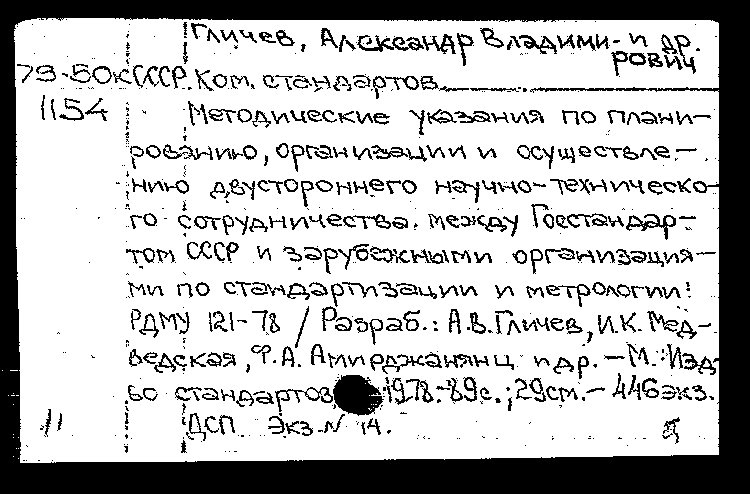 Гличев, Александр Владими- и др.
рович
79-50к СССР. Ком. стандартов.
1154 Методические указания по плани-
рованию, организации и осуществле-
нию двустороннего научно-техническо-
го сотрудничества между Госстандар-
том СССР и зарубежными организация-
ми по стандартизации и метрологии:
РДМУ 121-78 / Разраб.: А.В. Гличев, И.К. Мед-
ведская, Ф.А. Амирджанянц и др. - М.: Изд-
во стандартов 1978.-89с.; 29см. - 446экз.
11 ДСП Экз. N 14.